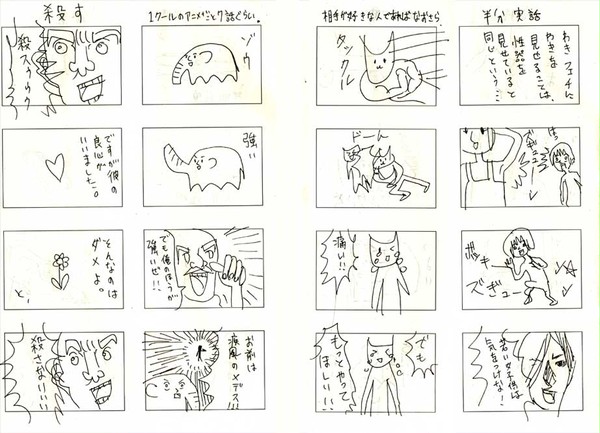 半分実話
わきフェチに
わきを
見せることは、
性器を
見せていると
同じという…
はっ
ズギュー
ズギュー
若い女子供は
気をつけな!
相手が好きな人であればなおさら。
タックル
どーん
痛い!!
でも
もっとやって
ほしい!!
1クールのアニメだと7話ぐらい。
ゾウ
強い
でも俺のほうが
強いぜ!!
お前は
疾風のメデス!!
殺す
殺スゥゥゥ
ですが彼の
良心が
いいました。
そんなのは
ダメよ。
と、
殺さない!!!